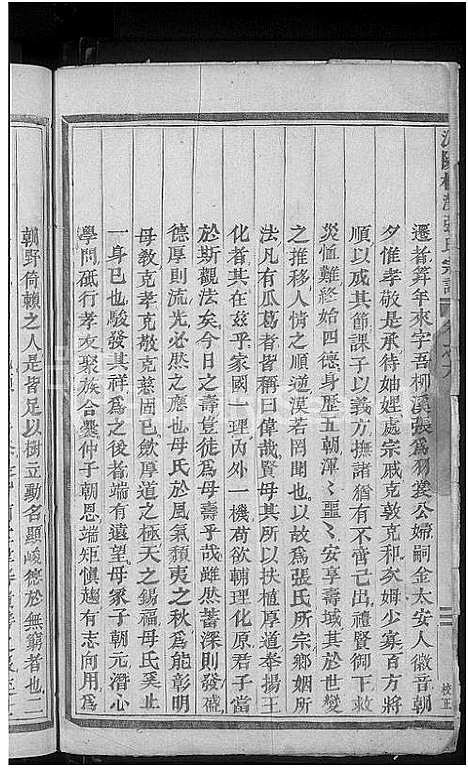 張氏宗譜
遷者筭年來字吾柳溪張爲羽裳公婦嗣金太安人徽音朝
夕惟孝敬是承待妯娌處宗戚克敦克和次姆少寡百方將
順以成其節課子以義方撫諸猶有不啻己出禮賢御下救
災恤難終始四德身歷五朝渾渾噩噩安享壽域其於世變
之推移人情之順逆漠若罔聞也以故爲張氏所宗鄉姻所
法凡有瓜葛者皆稱曰偉哉賢母其所以扶植厚道奉揚仁
化者其在兹乎家國一理內外一機苟欲輔理化原君子當
於斯觀法矣今日之壽萱徒爲母壽乎哉雖然蓄深則發盛
德厚則流光必然之應也母氏於風氣頹夷之秋爲能彰明
母教克孝克敬克慈固已歛厚道之極天之錫福母氏奚止
一身已也駿發其祥爲之後者端有遠望母冢子朝元潛心
學問砥行孝友聚族合爨仲子朝恩端矩慎趨有志向用爲
朝野倚賴之人是皆足以樹立勳名顯峻德於無窮者也二
校正